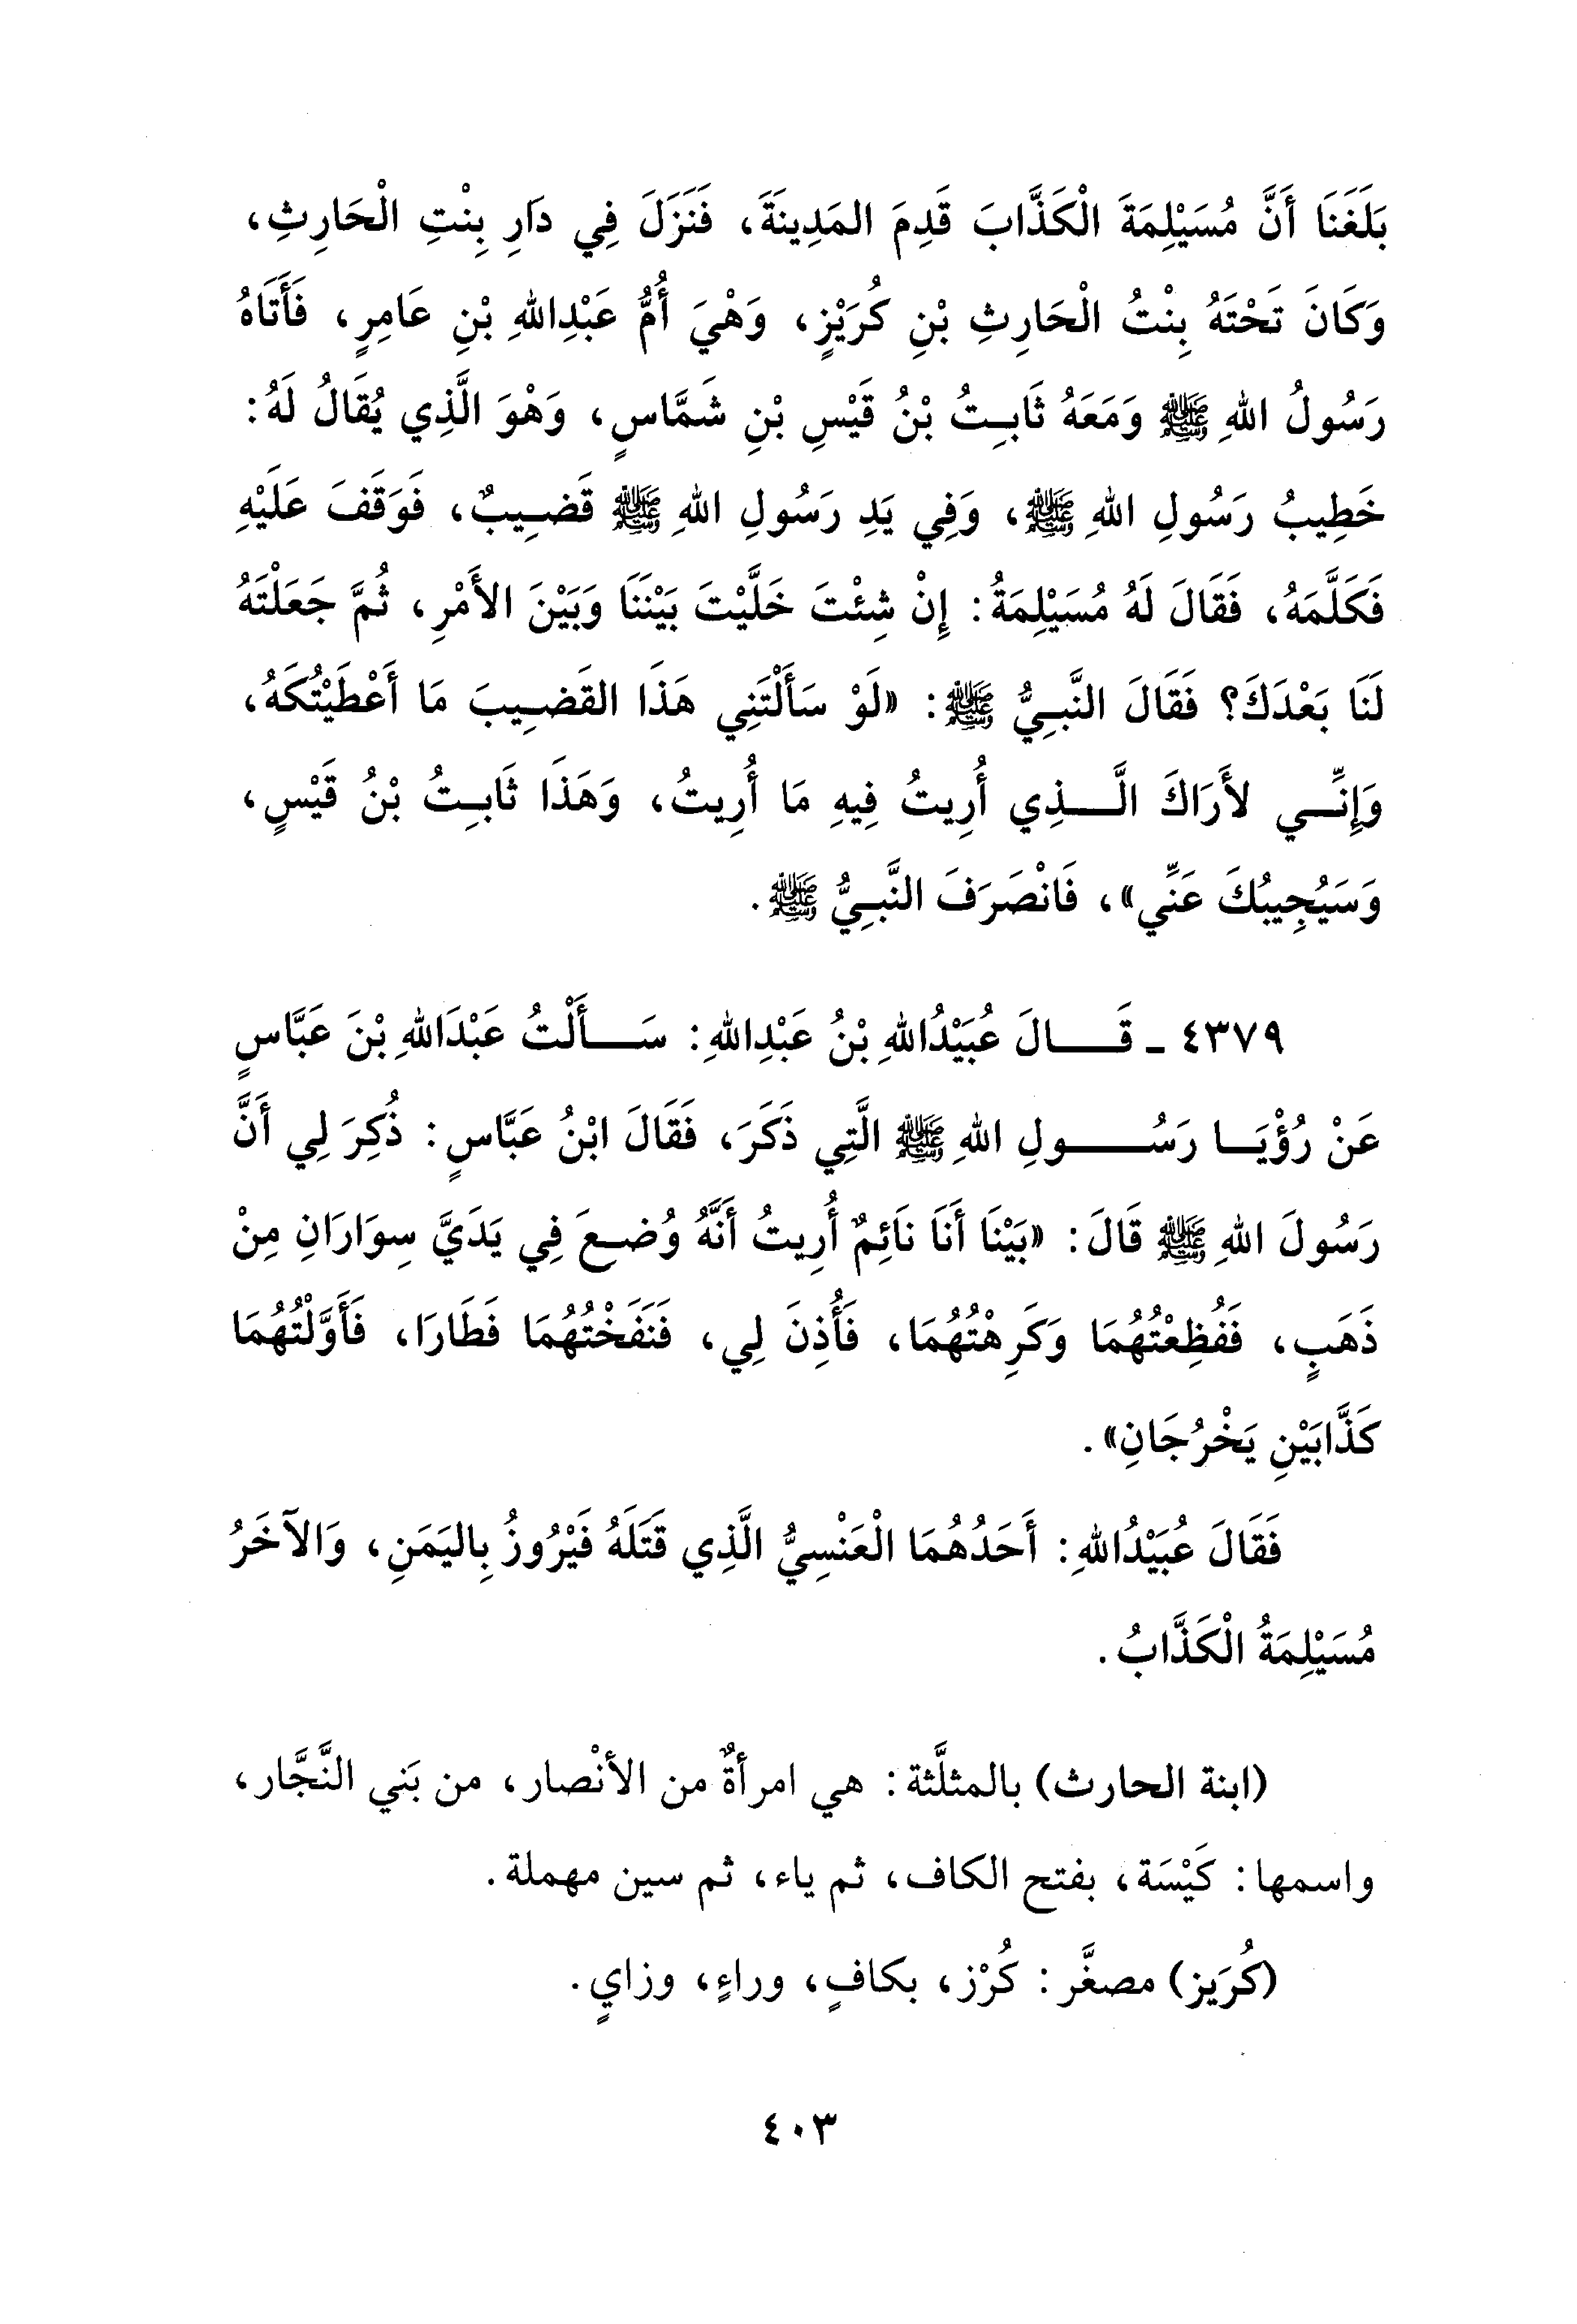 بَلَغَنَا أَنَّ مُسَيْلِمَةَ الْكَذَّابَ قَدِمَ المَدِينَةَ، فَنَزَلَ فِي دَارِ بِنْتِ الْحَارِثِ،
وَكَانَ تَحْتَهُ بِنْتُ الْحَارِثِ بْنِ كُرَيْزٍ، وَهْيَ أُمُّ عَبْدِاللهِ بْنِ عَامِرٍ، فَأَتَاهُ
رَسُولُ اللهِ ﷺ وَمَعَهُ ثَابِتُ بْنُ قَيْسِ بْنِ شَمَّاسٍ، وَهْوَ الَّذِي يُقَالُ لَهُ:
خَطِيبُ رَسُولِ اللهِ ﷺ، وَفِي يَدِ رَسُولِ اللهِ ﷺ قَضِيبٌ، فَوَقَفَ عَلَيْهِ
فَكَلَّمَهُ، فَقَالَ لَهُ مُسَيْلِمَةُ: إِنْ شِئْتَ خَلَّيْتَ بَيْنَنَا وَبَيْنَ الأَمْرِ، ثُمَّ جَعَلْتَهُ
لَنَا بَعْدَكَ؟ فَقَالَ النَّبِيُّ ﷺ: «لَوْ سَأَلْتَنِي هَذَا القَضِيبَ مَا أَعْطَيْتُكَهُ،
وَإِنِّي لأَرَاكَ الَّذِي أُرِيتُ فِيهِ مَا أُرِيتُ، وَهَذَا ثَابِتُ بْنُ قَيْسٍ،
وَسَيُجِيبُكَ عَنِّي»، فَانْصَرَفَ النَّبِيُّ ﷺ.
٤٣٧٩ - قَالَ عُبَيْدُاللهِ بْنُ عَبْدِاللهِ: سَأَلْتُ عَبْدَاللهِ بْنَ عَبَّاسٍ
عَنْ رُؤْيَا رَسُولِ اللهِ ﷺ الَّتِي ذَكَرَ، فَقَالَ ابْنُ عَبَّاسٍ: ذُكِرَ لِي أَنَّ
رَسُولَ اللهِ ﷺ قَالَ: «بَيْنَا أَنَا نَائِمٌ أُرِيتُ أَنَّهُ وُضِعَ فِي يَدَيَّ سِوَارَانِ مِنْ
ذَهَبٍ، فَفُظِعْتُهُمَا وَكَرِهْتُهُمَا، فَأُذِنَ لِي، فَنَفَخْتُهُمَا فَطَارَا، فَأَوَّلْتُهُمَا
كَذَّابَيْنِ يَخْرُجَانِ».
فَقَالَ عُبَيْدُاللهِ: أَحَدُهُمَا الْعَنْسِيُّ الَّذِي قَتَلَهُ فَيْرُوزُ بِاليَمَنِ، وَالآخَرُ
مُسَيْلِمَةُ الْكَذَّابُ.
(ابنة الحارث) بالمثلَّثة: هي امرأةٌ من الأنْصار، من بَني النَّجَّار،
واسمها: كَيْسَة، بفتح الكاف، ثم ياء، ثم سين مهملة.
(كُرَيز) مصغَّر: كُرْز، بكافٍ، وراءٍ، وزايٍ.
٤٠٣